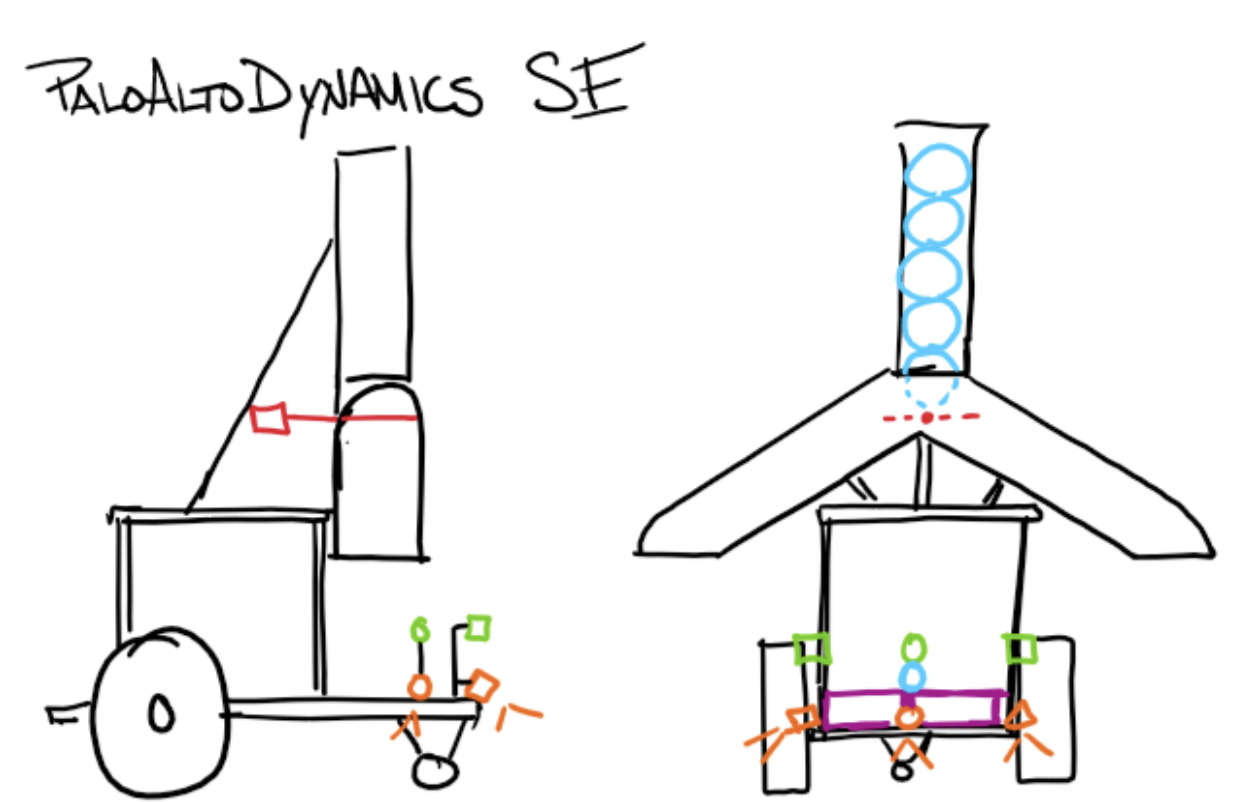 PALOALTODYNAMICS SE